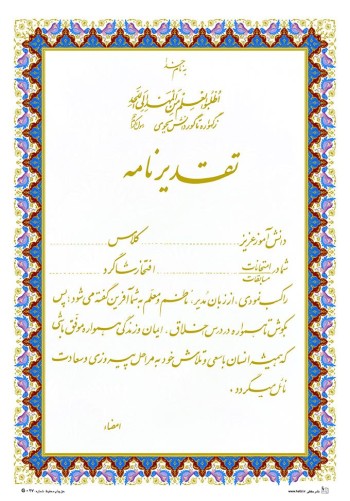 به نام خدا
اطلبوا العلم من المهد الی اللحد
ز گهواره تا گور دانش بجوی
تقدیرنامه
دانش آموز عزیز ........ کلاس ........
شما در امتحانات ........ افتخار شاگرد ........
مسابقات
را کسب نمودی، از زبان مدیر، ناظم و معلم به شما آفرین گفته می‌شود؛ پس
بکوش تا همواره در درس، اخلاق، ایمان و زندگی همواره موفق باشی
که همیشه انسان با سعی و تلاش خود به مراحل پیروزی و سعادت
نائل میگردد.
امضاء